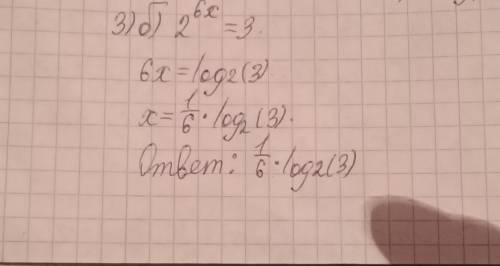 3) б) 2^{6x} = 3.
6x = log2(3)
x = \frac{1}{6} · log_2(3).
Ответ: \frac{1}{6} · log2(3)